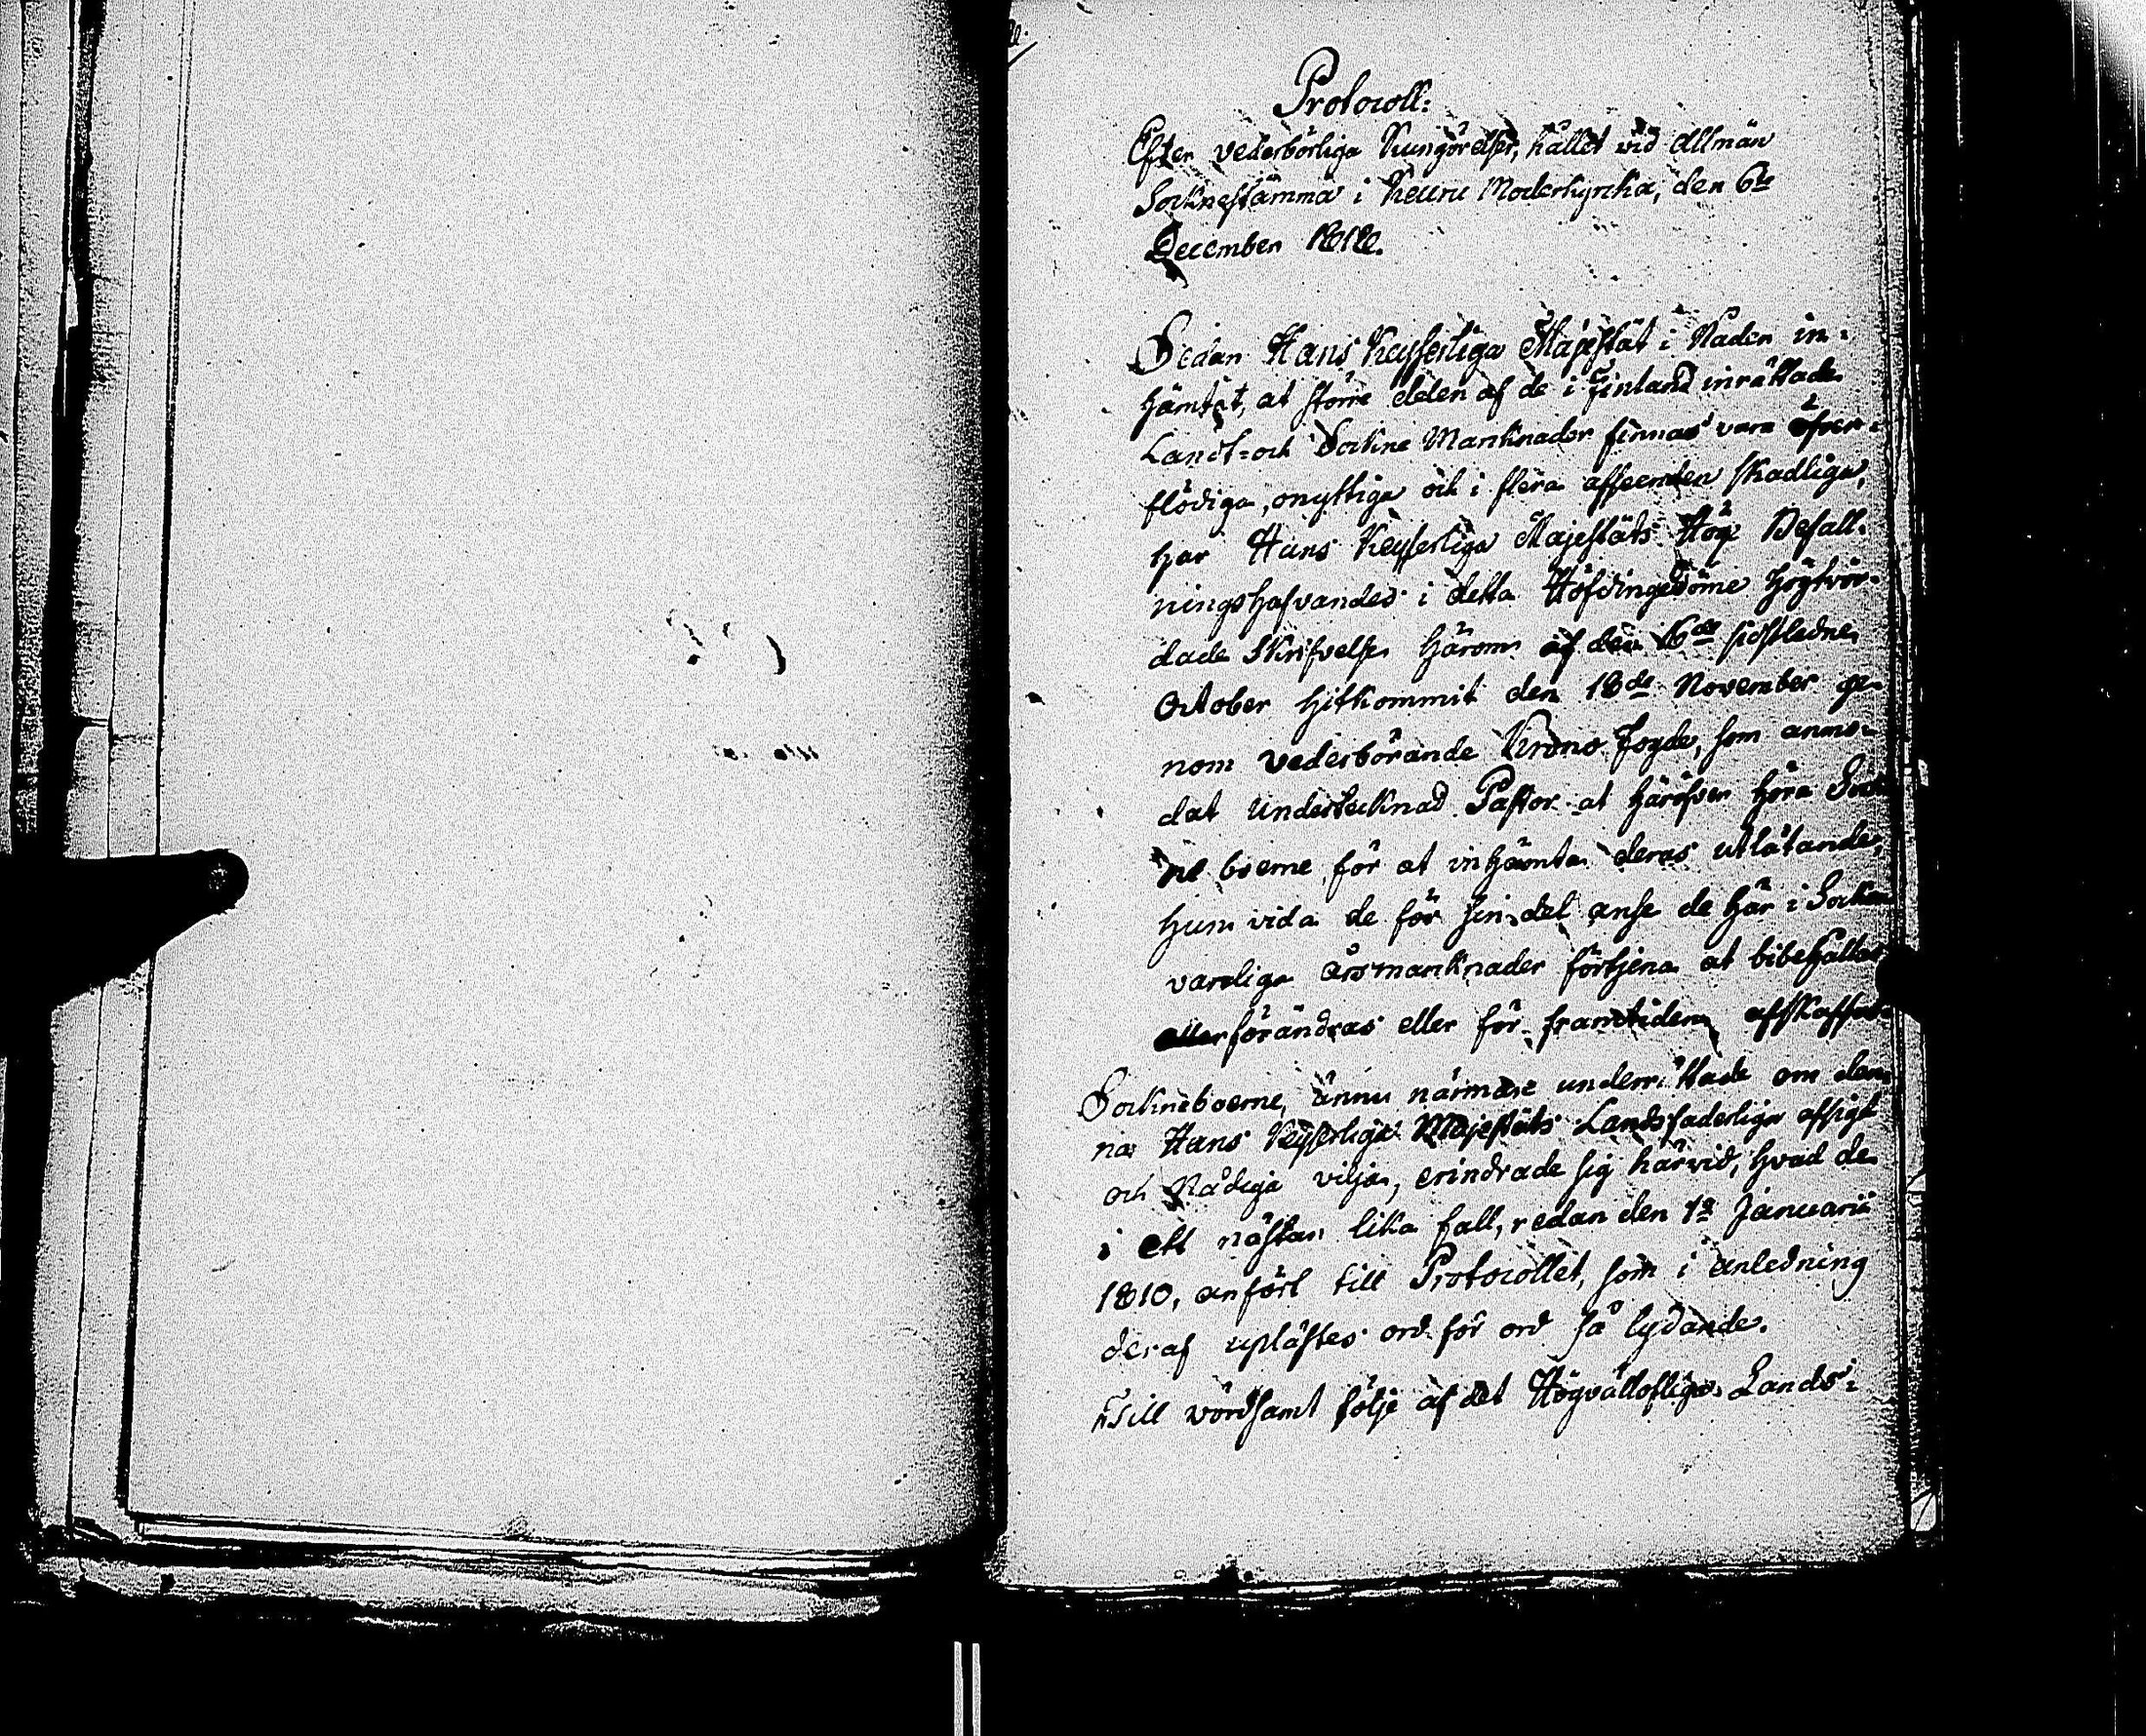 Protocoll:
Efter vederbörliga Kungörelser, hållet vid Allmän
Socknestämma i Keuru Moderkyrcka, den 6te
December 1812.
Sedan Hans Keyserliga Majestät i Nåder in-
hämtat, at större delen af de i Finland inrättade
Landt- och Sockne Marknader finnas vara öfver-
flödiga, onyttiga och i flera afseenden skadliga,
har Hans Keyserliga Majestäts Höge Befall-
ningshafvandes i detta Höfdingedöme Högtvör-
dade Skrifvelse härom af den 16de sidstledne
October hitkommit den 18de November ge-
nom vederbörande Krono Fogde, som anmo-
dat undertecknad Pastor at häröfver höra Sock
ne boerne för at inhämta deras utlåtande,
huru vida de för sin del anse de här i Socken
vanliga årsmarknader förtjena at bibehållas
eller förändras eller för framtiden afskaffas.
Sockneboerne, ännu närmare underrättade om den-
na Hans Keyserliga Majestäts Landsfaderliga afsigt
och Nådiga vilja, erindrade sig härvid, hvad de
i ett nästan lika fall, redan den 1a Januarii
1810, anfört till Protocollet, som i anledning
deraf uplästes ord för ord så lydande.
Till vördsamt följe af det Högvällofliga Lands-